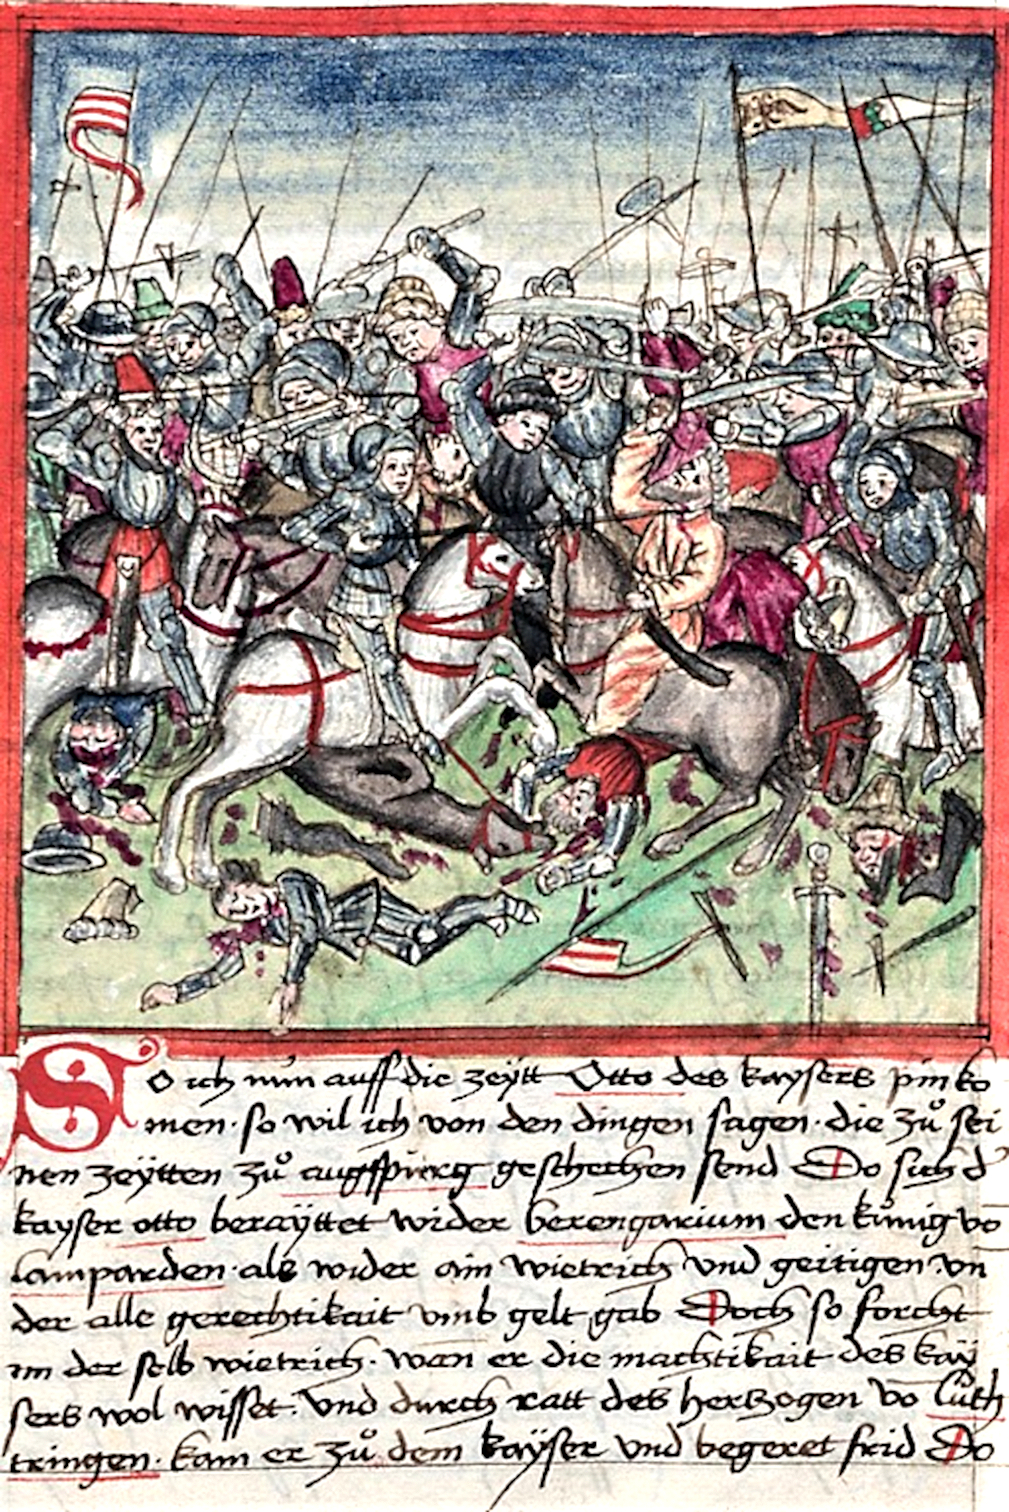 So ich nun auff die zeÿtt Otto des kaysers pin ko
men · so wil ich von den dingen sagen · die zů sei
nen zeÿtten zů augspurg geschechen send Do sich d'
kayser otto beraÿttet wider berengarium den kunig vo
lamparden · als wider ain wietrich vnd geitigen · vn
der alle gerechtikait vmb gelt gab Doch so forcht
im der selb wietrich · wan er die machtikait des kaÿ
sers wol wisset · vnd durch ratt des hertzogen vo luth
tringen · kam er zů dem kaÿser vnd begeret frid Do